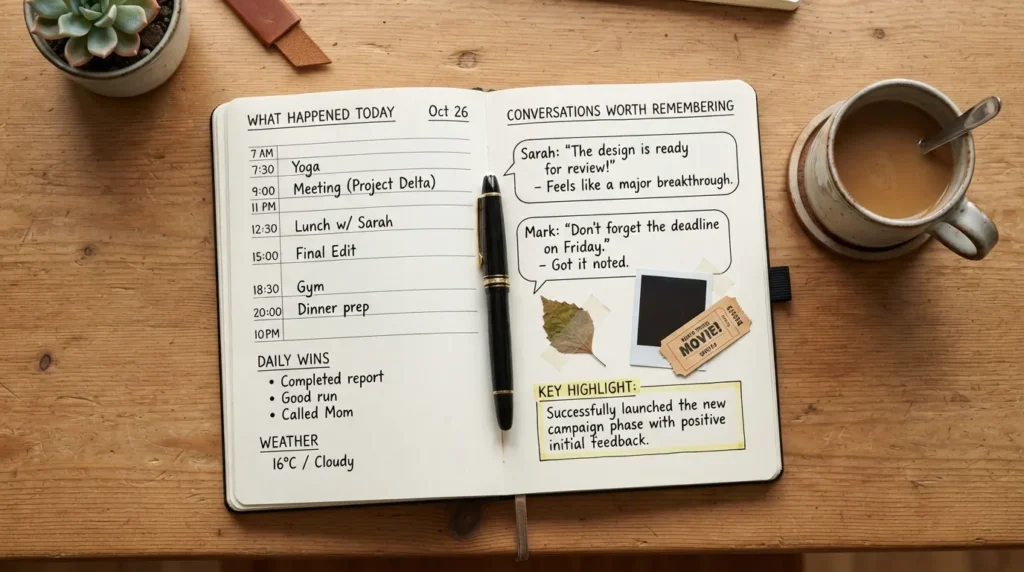 WHAT HAPPENED TODAY Oct 26
7 AM
7:30 Yoga
9:00 Meeting (Project Delta)
11 PM
12:30 Lunch w/ Sarah
15:00 Final Edit
18:30 Gym
20:00 Dinner prep
10 PM
DAILY WINS
• Completed report
• Good run
• Called Mom
WEATHER
16°C / Cloudy
CONVERSATIONS WORTH REMEMBERING
Sarah: "The design is ready
for review!"
– Feels like a major breakthrough.
Mark: "Don't forget the deadline
on Friday."
– Got it noted.
MOVIE!
KEY HIGHLIGHT:
Successfully launched the new
campaign phase with positive
initial feedback.